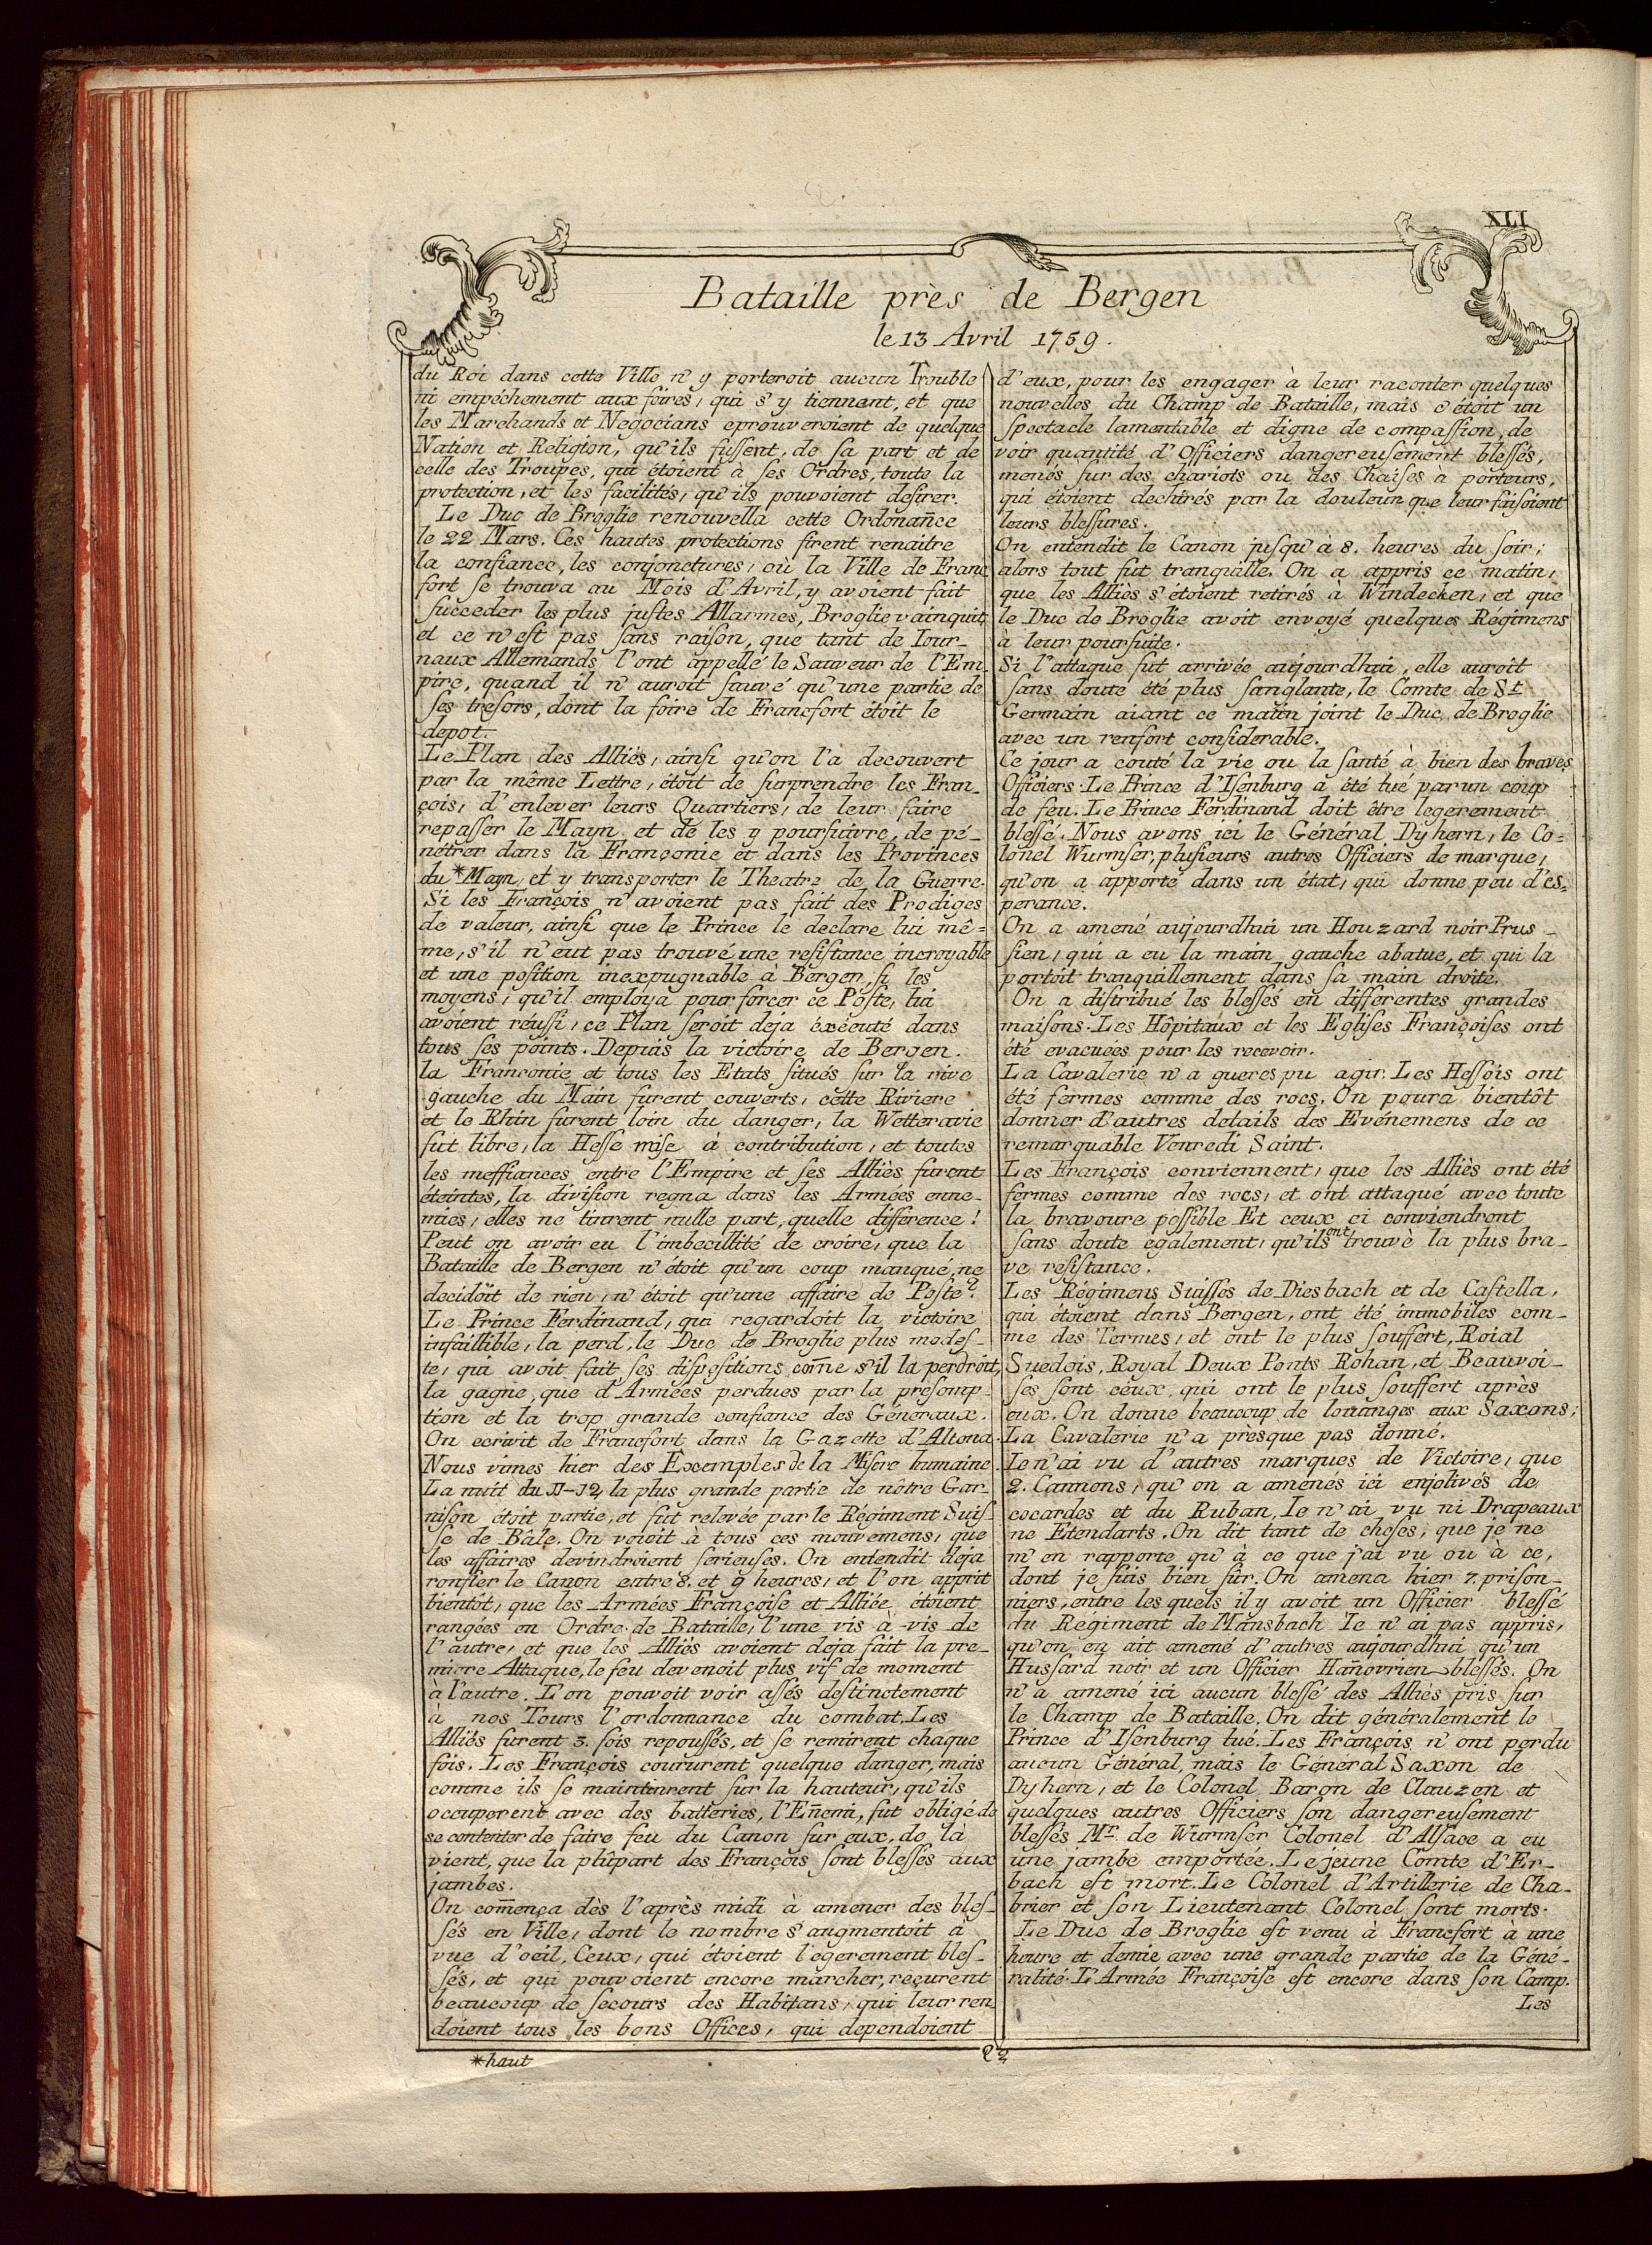 XLI
Bataille près de Bergen
le 13 Avril 1759.
du Roi dans cette Ville n'y porteroit aucun Trouble
ni empéchement aux foires, qui s'y tiennent, et que
les Marchands et Negocians eprouveroient de quelque
Nation et Religion, qu'ils fuſſent, de ſa part et de
celle des Troupes, qui étoient à ſes Ordres, toute la
protection, et les facilités, qu'ils pouvoient deſirer.
Le Duc de Broglie renouvella cette Ordonan̄ce
le 22 Mars. Ces hautes protections firent renaitre
la confiance, les conjonctures, où la Ville de Franc
fort ſe trouva au Mois d'Avril, y avoient fait
ſucceder les plus juſtes Allarmes, Broglie vainquit,
et ce n'eſt pas ſans raiſon, que tant de Iour-
naux Allemands l'ont appellé le Sauveur de l'Em-
pire, quand il n'auroit ſauvé qu'une partie de
ſes treſors, dont la foire de Francfort étoit le
depot.
Le Plan des Alliés, ainſi qu'on l'a decouvert
par la même Lettre, étoit de ſurprendre les Fran-
çois, d'enlever leurs Quartiers, de leur faire
repaſſer le Mayn et de les y pourſuivre, de pé-
nétrer dans la Françonie et dans les Provinces
du *Mayn, et y transporter le Theatre de la Guerre.
Si les François n'avoient pas fait des Prodiges
de valeur, ainſi que le Prince le declare lui mê=
me, s'il n'eut pas trouvé une reſiſtance incroyable
et une poſition inexpugnable à Bergen, ſi les
moyens, qu'il employa pour forcer ce Poſte, lui
avoient réuſſi, ce Plan ſeroit deja éxécuté dans
tous ſes points. Depuis la victoire de Bergen.
la Franconie et tous les Etats ſitués ſur la rive
gauche du Main furent couverts, cette Riviere
et le Rhin furent loin du danger, la Wetteravie
fut libre, la Heſſe miſe à contribution, et toutes
les meffiances entre l'Empire et ſes Alliès furent
éteintes, la diviſion regna dans les Armées enne-
mies, elles ne tinrent nulle part, quelle difference!
Peut on avoir eu l'imbecillité de croire, que la
Bataille de Bergen n'étoit qu'un coup manqué, ne
decidoit de rien, n'étoit qu'une affaire de Poſte?
Le Prince Ferdinand, qui regardoit la victoire
infaillible, la perd, le Duc de Broglie plus modeſ-
te, qui avoit fait ſes dispoſitions com̄e s'il la perdroit,
la gagne, que d'Armées perdues par la preſomp-
tion et la trop grande confiance des Géneraux.
On ecrivit de Francfort dans la Gazette d'Altona.
Nous vimes hier des Exemples de la Miſere humaine.
La nuit du 11-12 la plus grande partie de nôtre Gar-
niſon étoit partie, et fut relevée par le Régiment Suiſ-
ſe de Bâle. On voioit à tous ces mouvemens, que
les affaires devindroient ſerieuſes. On entendit deja
ronfler le Canon entre 8. et 9 heures, et l'on apprit
bientôt, que les Armées Françoiſe et Alliée étoient
rangées en Ordre de Bataille, l'une vis à vis de
l'autre, et que les Alliès avoient deja fait la pre-
miere Attaque, le feu devenoit plus vif de moment
à l'autre. L'on pouvoit voir aſſés deſtinctement
à nos Tours l'ordonnance du combat. Les
Alliès furent 3. fois repouſſés, et ſe remirent chaque
fois. Les François coururent quelque danger, mais
comme ils ſe maintinrent ſur la hauteur, qu'ils
occuperent avec des batteries, l'En̄emi, fut obligé de
se contenter de faire feu du Canon ſur eux, de là
vient, que la plûpart des François ſont bleſſés aux
jambes.
On com̄ença dès l'après midi à amener des bleſ-
ſés en Ville, dont le nombre s'augmentoit à
vue d'oeil, Ceux, qui étoient légerement bleſ-
ſés, et qui pouvoient encore marcher, reçurent
beaucoup de ſecours des Habitans, qui leur ren
doient tous les bons Offices, qui dependoient
*haut
d'eux, pour les engager à leur raconter quelques
nouvelles du Champ de Bataille, mais c'étoit un
ſpectacle lamentable et digne de compaſſion, de
voir quantité d'Officiers dangereuſement bleſſés,
menés ſur des chariots ou des Chaiſes à porteurs,
qui étoient dechirés par la douleur que leur faiſoient
leurs bleſſures.
On entendit le Canon juſqu'à 8. heures du ſoir;
alors tout fut tranquille. On a appris ce matin,
que les Alliès s'étoient retirés à Windecken, et que
le Duc de Broglie avoit envoyé quelques Régimens
à leur pourſuite.
Si l'attaque fut arrivée aujourdhui, elle auroit
ſans doute été plus ſanglante, le Comte de St.
Germain aiant ce matin joint le Duc de Broglie
avec un renfort conſiderable.
Ce jour a couté la vie ou la ſanté à bien des braves
Officiers. Le Prince d'Iſenburg a été tué par un coup
de feu. Le Prince Ferdinand doit être legerement
bleſſé. Nous avons ici le Général Dyhern, le Co=
lonel Wurmſer, pluſieurs autres Officiers de marque,
qu'on a apporté dans un état, qui donne peu d'es=
perance.
On a amené aujourdhui un Houzard noir Prus-
ſien, qui a eu la main gauche abatue, et qui la
portoit tranquillement dans ſa main droite.
On a diſtribué les bleſſés en differentes grandes
maiſons. Les Hôpitaux et les Egliſes Françoiſes ont
été evacuées pour les recevoir.
La Cavalerie n'a gueres pu agir. Les Heſſois ont
été fermes comme des rocs. On poura bientôt
donner d'autres details des Evénemens de ce
remarquable Venredi Saint.
Les François conviennent, que les Alliès ont été
fermes comme des rocs, et ont attaqué avec toute
la bravoure poſſible Et ceux ci conviendront
ſans doute egalement, qu'ils ont trouvè la plus bra-
ve reſiſtance.
Les Régimens Suiſſes de Diesbach et de Caſtella,
qui étoient dans Bergen, ont été immobiles com-
me des Termes, et ont le plus ſouffert, Roial
Suedois, Royal Deux Ponts Rohan, et Beauvoi-
ſes ſont ceux, qui ont le plus ſouffert après
eux. On donne beaucoup de louanges aux Saxons;
La Cavalerie n'a prèsque pas donné.
Ie n'ai vu d'autres marques de Victoire, que
2. Cannons, qu'on a amenés ici enjolivés de
cocardes et du Ruban, Ie n'ai vu ni Drapeaux
ne Etendarts. On dit tant de choſes, que je ne
m'en rapporte qu'à ce que j'ai vu ou à ce,
dont je ſuis bien ſûr. On amena hier 7. priſon-
niers, entre les quels il y avoit un Officier bleſſé
du Régiment de Mansbach Ie n'ai pas appris,
qu'on en ait amené d'autres aujourdhui qu'un
Huſſard noir et un Officier Han̄ovrien bleſſés. On
n'a amené ici aucun bleſſé des Alliés pris ſur
le Champ de Bataille. On dit généralement le
Prince d'Iſenburg tué. Les François n'ont perdu
aucun Général, mais le Géneral Saxon de
Dyhern, et le Colonel Baron de Clauzen et
quelques autres Officiers ſon dangereuſement
bleſſés Mr. de Wurmſer Colonel d'Alſace a eu
une jambe emportée. Le jeune Comte d'Er-
bach eſt mort. Le Colonel d'Artillerie de Cha-
brier et ſon Lieutenant Colonel ſont morts.
Le Duc de Broglie eſt venu à Francfort à une
heure et demie avec une grande partie de la Géné-
ralité. L'Armée Françoiſe eſt encore dans ſon Camp.
Les